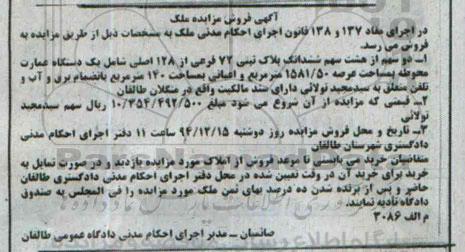 آگهی فروش مزایده ملک
در اجرای مفاد ۱۳۷ و ۱۳۸ قانون اجرای احکام مدنی ملک به مشخصات ذیل از طریق مزایده به
فروش می رسد.
۱ــ دو سهم از هشت سهم ششدانگ پلاک ثبتی ۷۲ فرعی از ۱۲۸ اصلی شامل یک دستگاه عمارت
محوطه بمساحت عرصه ۱۵۸۱/۵۰ مترمربع و اعیانی بمساحت ۱۴۰ مترمربع بانضمام برق و آب و
تلفن متعلق به سیدمجید تولائی دارای سند مالکیت واقع در منگلان طالقان
۲ــ قیمتی که مزایده از آن شروع می شود مبلغ ۱۰/۳۵۴/۴۹۲/۵۰۰ ریال سهم سیدمجید
تولائی
۳ــ تاریخ و محل فروش مزایده روز دوشنبه ۹۴/۱۲/۱۵ ساعت ۱۱ دفتر اجرای احکام مدنی
دادگستری شهرستان طالقان
متقاضیان خرید می بایستی تا موعد فروش از املاک مورد مزایده بازدید و در صورت تمایل به
خرید برای خرید آن در وقت تعیین شده در محل دفتر اجرای احکام مدنی دادگستری طالقان
حاضر و پس از برنده شدن ده درصد بهای ثمن ملک مورد مزایده را فی المجلس به صندوق
دادگاه تادیه نمایند.
م الف ۳۰۸۶
صانسیان ــ مدیر اجرای احکام مدنی دادگاه عمومی طالقان